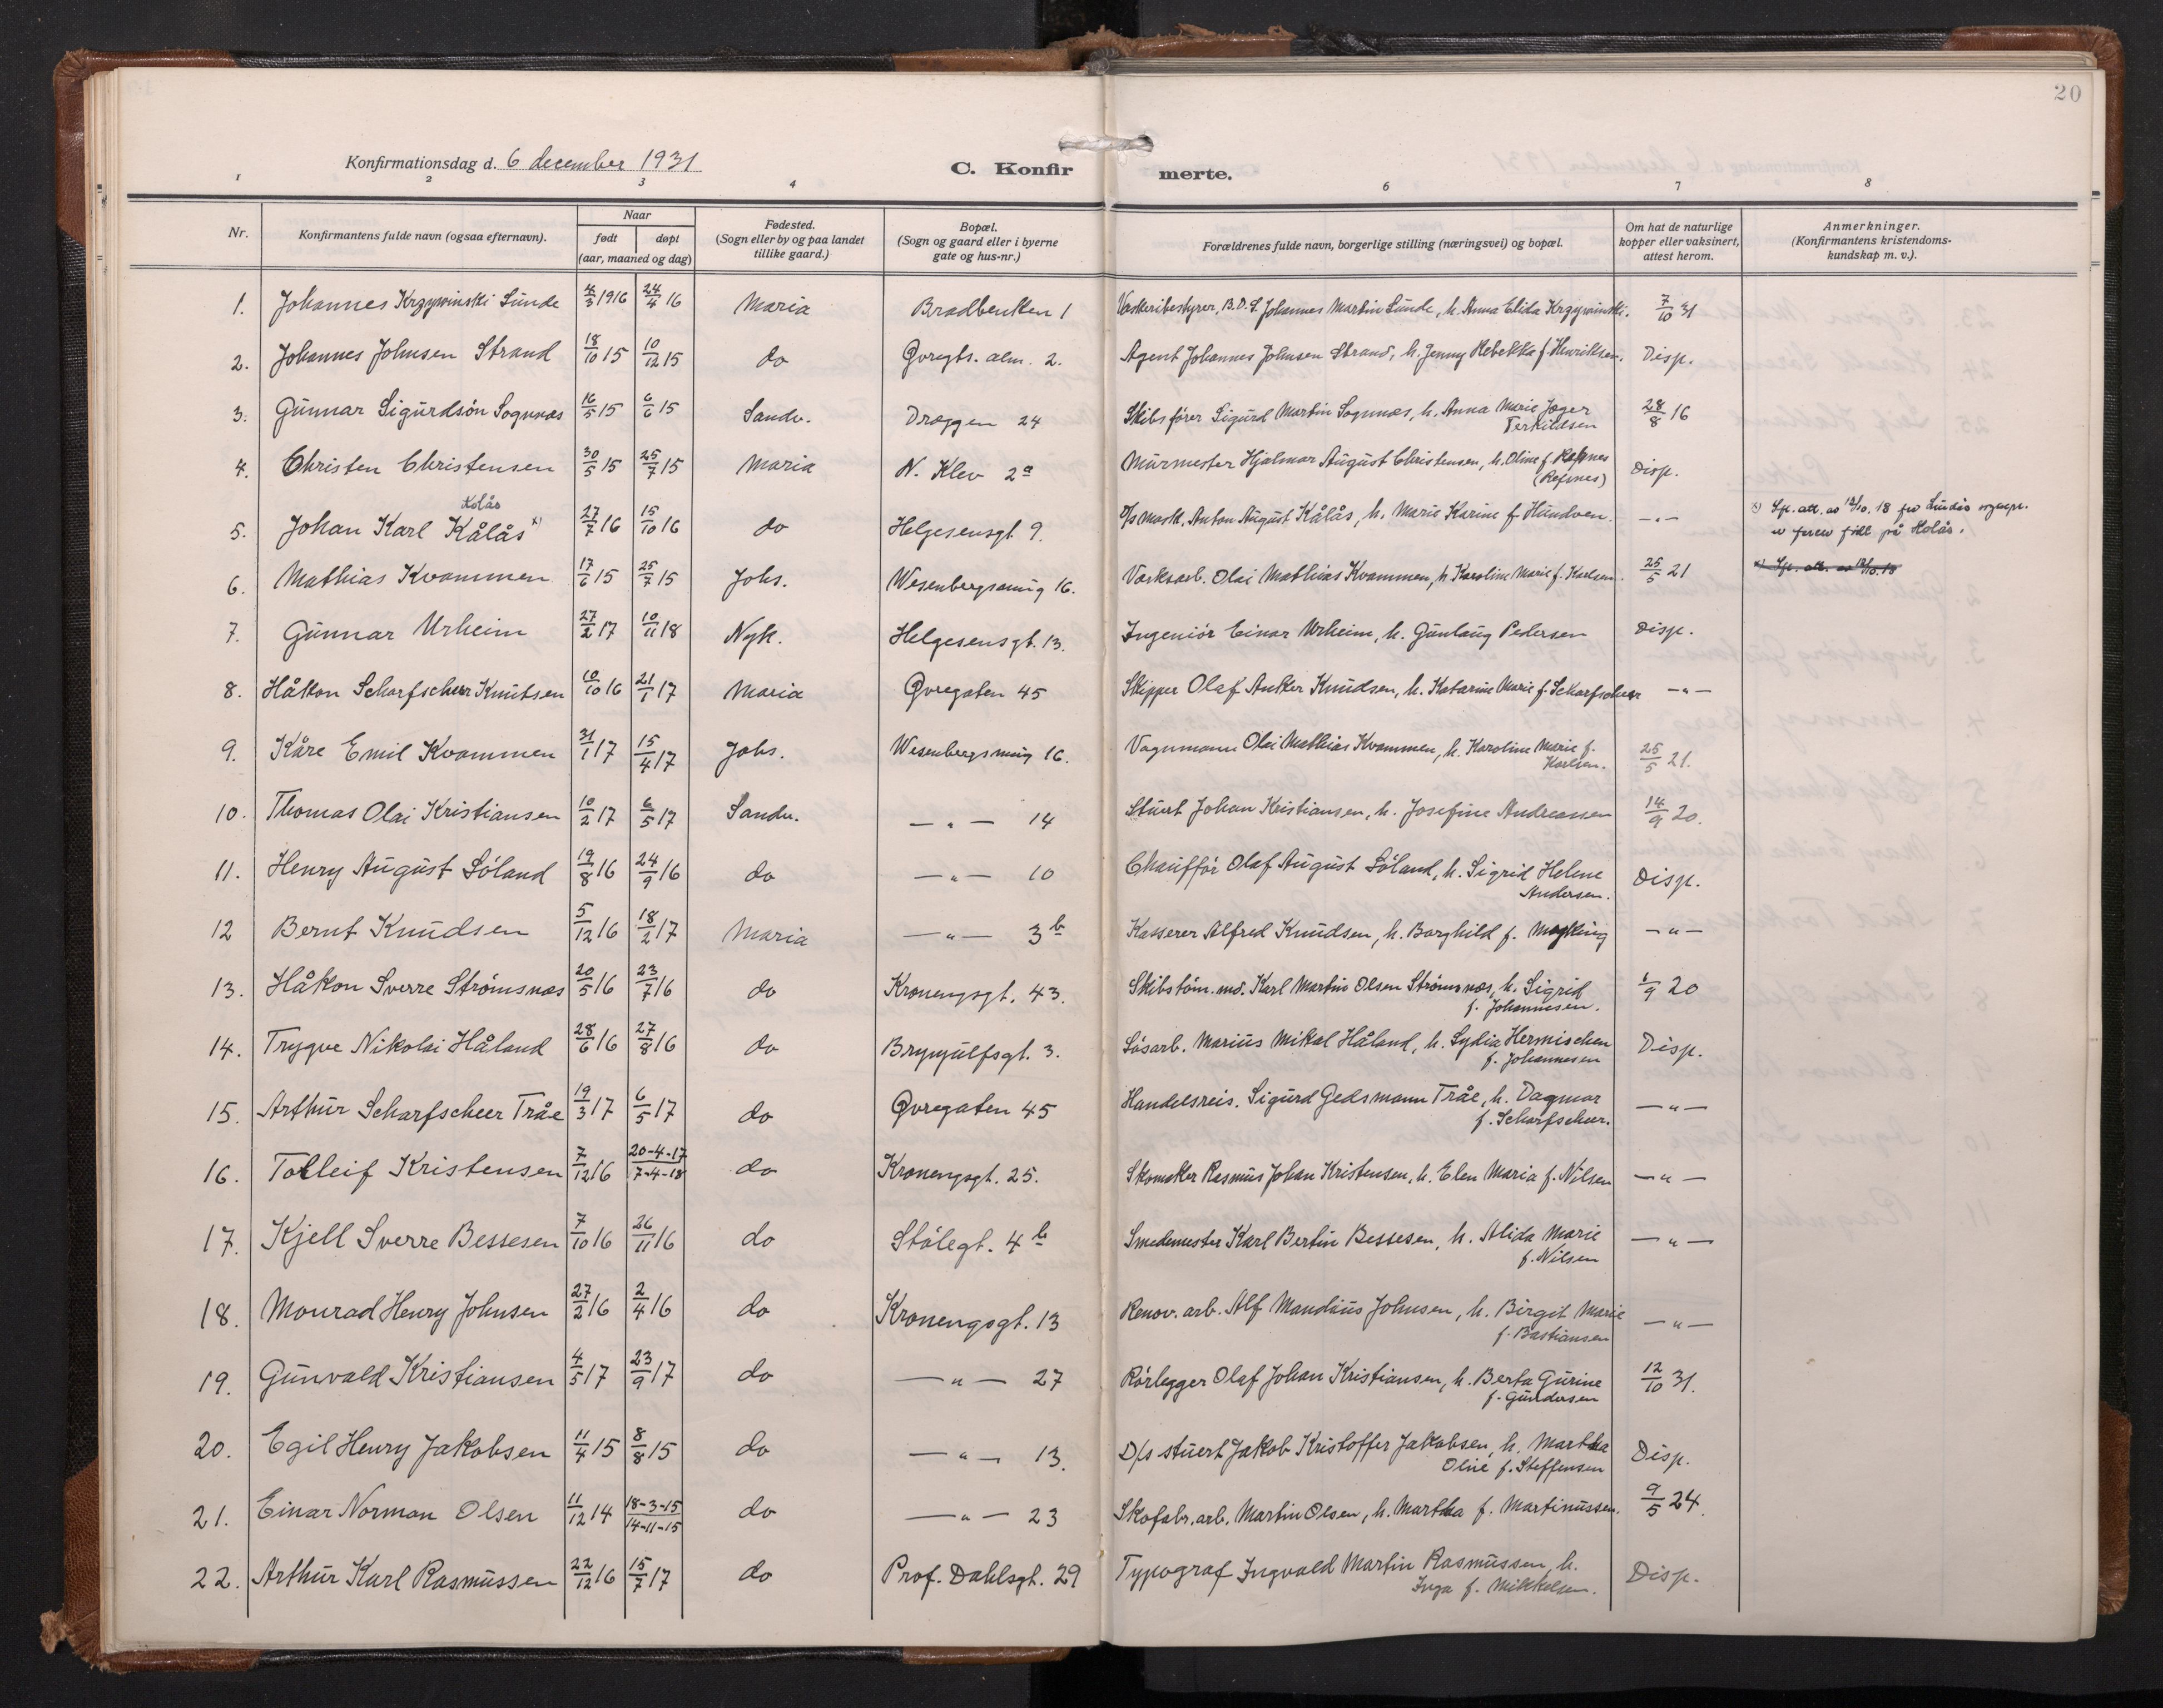 20
Konfirmationsdag d. 6 december 1931
C. Konfirmerte.
1 2 3 4 6 7 8
Nr. Konfirmantens fulde navn (ogsaa efternavn). Naar født døpt (aar, maaned og dag) Fødested. (Sogn eller by og paa landet tillike gaard.) Bopæl. (Sogn og gaard eller i byerne gate og hus-nr.) Forældrenes fulde navn, borgerlige stilling (næringsvei) og bopæl. Om hat de naturlige kopper eller vaksinert, attest herom. Anmerkninger. (Konfirmantens kristendoms-kundskap m. v.).
1. Johannes Krzywinski Sunde 4/3 1916 24/4 16 Maria Bradbenken 1 Vaskeribestyrer, B.D.S. Johannes Martin Sunde, h. Anna Elida Krzywinski. 7/10 31
2. Johannes Johnsen Strand 18/10 15 10/12 15 do Øvregts. alm. 2. Agent Johannes Johnsen Strand, h. Jenny Rebekka f. Henriksen. Disp.
3. Gunnar Sigurdsön Sognnæs 16/5 15 6/6 15 Sandv. Dræggen 24 Skibsförer Sigurd Martin Sognnæs, h. Anna Marie Jæger 28/8 16
Terkildsen
4. Christen Christensen 30/5 15 25/7 15 Maria N. Klev 2a Murmester Hjalmar August Christensen, h. Oline f. Refsnes Disp.
(Refsnes)
Kolås
5. Johan Karl Kålås x) 27/7 16 15/10 16 do Helgesensgt. 9. D/s mask. Anton August Kålås, h. Marie Karine f. Hundven. -"- x) Lp. att. av 12/10. 18 fra Lindås sogнepr.
er feren född på Kolås.
6. Mathias Kvammen 17/6 15 25/7 15 Johs. Wesenbergsmug 16. Værksarb. Olai Mathias Kvammen, h. Karoline Marie f. Karlsen. 25/5 21 x) Lp. att. av 12/10. 18
7. Gunnar Urheim 27/2 17 10/11 18 Nyk. Helgesensgt. 13. Ingeniör Einar Urheim, h. Gunlaug Pedersen Disp.
8. Håkon Scharfscheer Knutsen 10/10 16 21/1 17 Maria Øvregaten 45 Skipper Olaf Anker Knudsen, h. Katarine Marie f. Scharfscheer -"-
9. Kåre Emil Kvammen 31/1 17 15/4 17 Johs. Wesenbergsmug 16. Vognmann Olai Mathias Kvammen, h. Karoline Marie f. 25/5 21.
Karlsen.
10. Thomas Olai Kristiansen 10/2 17 6/5 17 Sandv. -"- 14 Stuert Johan Kristiansen, h. Josefine Andreassen 14/9 20.
11. Henry August Söland 19/8 16 24/9 16 do -"- 10 Chaufför Olaf August Söland, h. Sigrid Helene Disp.
Andersen.
12 Bernt Knudsen 5/12 16 18/2 17 Maria -"- 3b Kasserer Alfred Knudsen, h. Borghild f. Myking -"-
13. Håkon Sverre Strömsnæs 20/5 16 23/7 16 do Kronengsgt. 43. Skibstöm.md. Karl Martin Olsen Strömsnæs, h. Sigrid 1/9 20
f. Johannesen.
14. Trygve Nikolai Håland 28/6 16 27/8 16 do Brynjulfsgt. 3. Lösarb. Marius Mikal Håland, h. Lydia Hermischen Disp.
f. Johannesen
15. Arthur Scharfscheer Tråe 19/3 17 6/5 17 do Øvregaten 45 Handelsreis. Sigurd Gedsmann Tråe, h. Dagmar -"-
f. Scharfscheer.
16. Tolleif Kristensen 7/12 16 20-4-17 / 7-4-18 do Kronengsgt. 25. Skomaker Rasmus Johan Kristensen, h. Elen Maria f. Nilsen -"-
17. Kjell Sverre Bessesen 7/10 16 26/11 16 do Stölegt. 4b Smedemester Karl Bertin Bessesen, h. Alida Marie -"-
f. Nilsen
18. Monrad Henry Johnsen 27/2 16 2/4 16 do Kronengsgt. 13 Renov. arb. Alf Mandius Johnsen, h. Birgit Marie -"-
f. Bastiansen
19. Gunvald Kristiansen 4/5 17 23/9 17 do -"- 27 Rörlegger Olaf Johan Kristiansen, h. Berta Gurine 12/10 31.
f. Gundersen
20. Egil Henry Jakobsen 11/4 15 8/8 15 do -"- 13. D/s stuert Jakob Kristoffer Jakobsen, h. Martha Disp.
Oline f. Steffensen
21. Einar Norman Olsen 11/12 14 18-3-15 / 14-11-15 do -"- 23 Skofabr.arb. Martin Olsen, h. Martha f. Martinussen. 9/5 24.
22. Arthur Karl Rasmussen 22/12 16 15/7 17 do Prof. Dahlsgt. 29 Typograf Ingvald Martin Rasmussen, h. Disp.
Inga f. Mikkelsen.